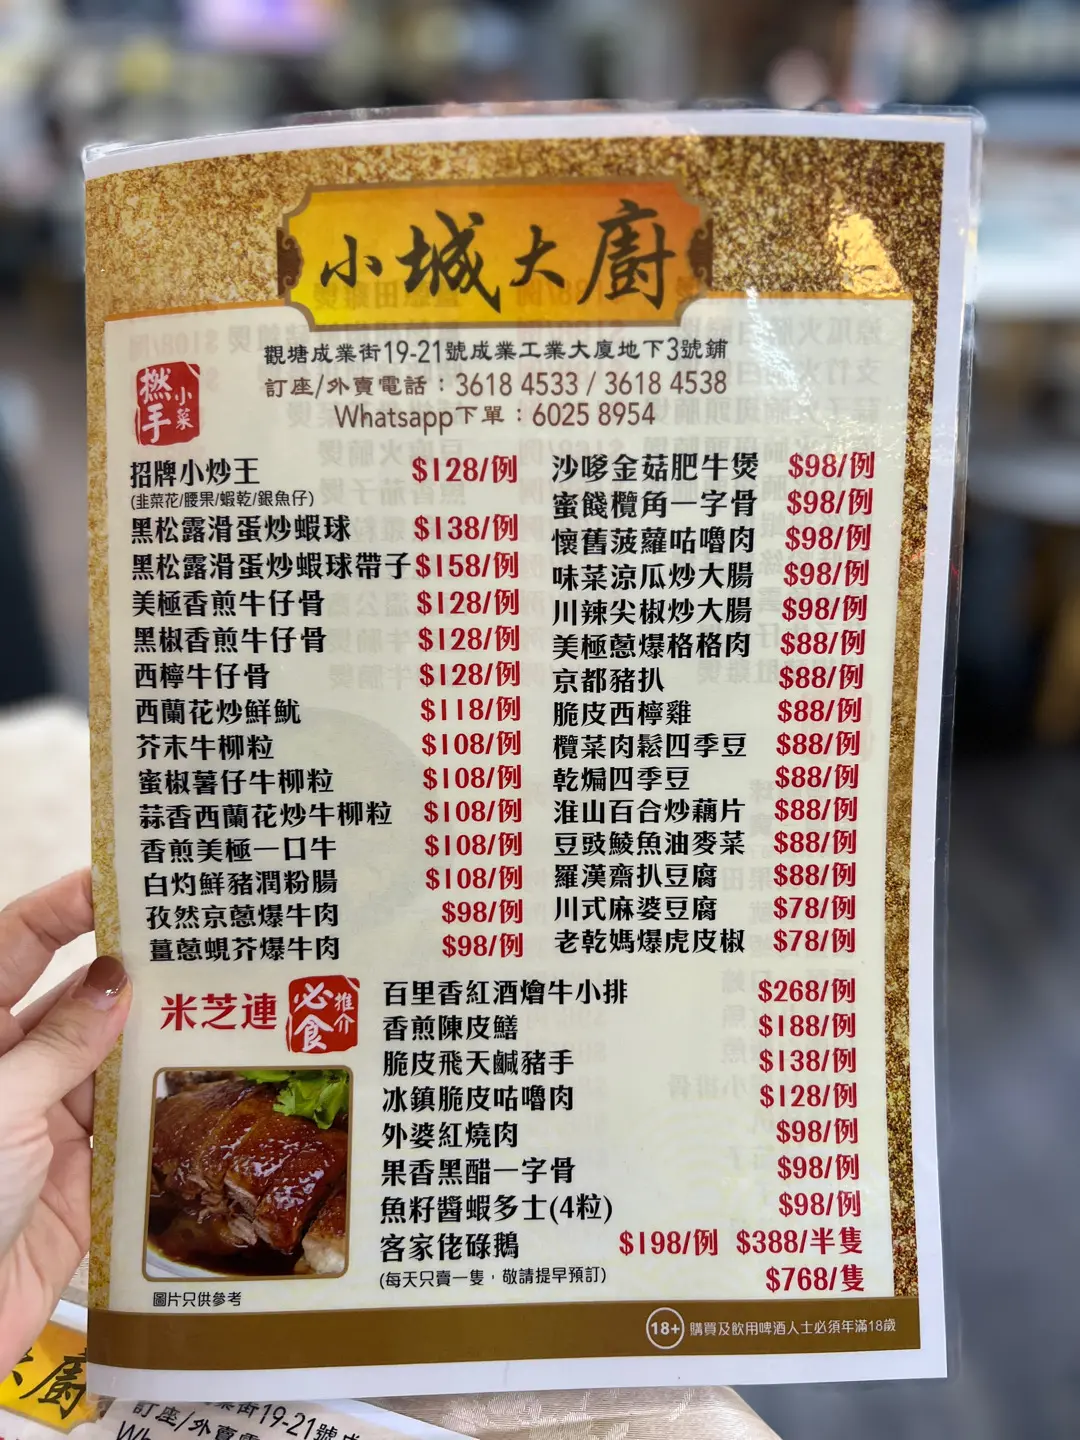 小城大廚
觀塘成業街19-21號成業工業大廈地下3號鋪
訂座/外賣電話：3618 4533 / 3618 4538
Whatsapp下單：6025 8954
撚手小菜
招牌小炒王 $128/例
(韭菜花/腰果/蝦乾/銀魚仔)
黑松露滑蛋炒蝦球 $138/例
黑松露滑蛋炒蝦球帶子 $158/例
美極香煎牛仔骨 $128/例
黑椒香煎牛仔骨 $128/例
西檸牛仔骨 $128/例
西蘭花炒鮮魷 $118/例
芥末牛柳粒 $108/例
蜜椒薯仔牛柳粒 $108/例
蒜香西蘭花炒牛柳粒 $108/例
香煎美極一口牛 $108/例
白灼鮮豬潤粉腸 $108/例
孜然京蔥爆牛肉 $98/例
薑蔥蜆芥爆牛肉 $98/例
沙嗲金菇肥牛煲 $98/例
蜜餞欖角一字骨 $98/例
懷舊菠蘿咕嚕肉 $98/例
味菜涼瓜炒大腸 $98/例
川辣尖椒炒大腸 $98/例
美極蔥爆格格肉 $88/例
京都豬扒 $88/例
脆皮西檸雞 $88/例
欖菜肉鬆四季豆 $88/例
乾煸四季豆 $88/例
淮山百合炒藕片 $88/例
豆豉鯪魚油麥菜 $88/例
羅漢齋扒豆腐 $88/例
川式麻婆豆腐 $78/例
老乾媽爆虎皮椒 $78/例
米芝連 必食推介
百里香紅酒燴牛小排 $268/例
香煎陳皮鱔 $188/例
脆皮飛天鹹豬手 $138/例
冰鎮脆皮咕嚕肉 $128/例
外婆紅燒肉 $98/例
果香黑醋一字骨 $98/例
魚籽醬蝦多士(4粒) $98/例
客家佬碌鵝 $198/例 $388/半隻
(每天只賣一隻，敬請提早預訂) $768/隻
圖片只供參考
18+ 購買及飲用啤酒人士必須年滿18歲